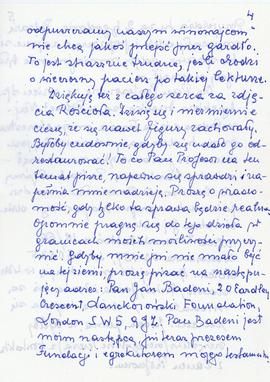 4
odpuszczamy naszym winowajcom"
nie chcą jakoś przejść przez gardło.
To jest strasznie trudne, jeśli chodzi
o wieczorny pacierz po takiej lekturze.
Dziękuję też z całego serca za zdję-
cia Kościoła. Dziwię się i niezmiernie
cieszę, że się nawet figury zachowały.
Byłoby cudownie, gdyby się udało go od-
restaurować! To co Pan Profesor na ten
temat pisze, napewno się sprawdzi i na-
pełnia mnie nadzieją. Proszę o wiado-
mość, gdy tylko ta sprawa będzie realna.
Ogromnie pragnę się do tego dzieła w
granicach moich możliwości przyczy-
nić. Gdyby mnie już nie miało być
na tej ziemi, proszę pisać na następu-
jący adres: Pan Jan Badeni, 20
Crescent, Lanckoroński Foundation,
London S.W.5, 9
moim następcą, już teraz prezesem
Fundacji i egzekutorem mojego testamentu.